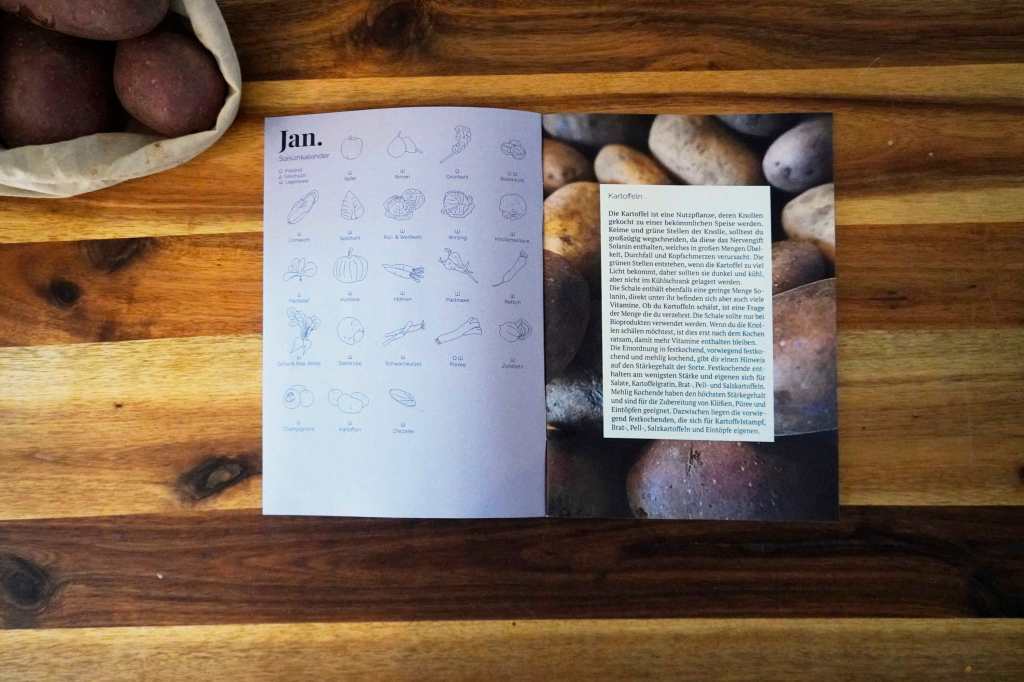 Jan.
Saisonkalender
Freiland
Geschützt
Lagerware
Äpfel
Birnen
Grünkohl
Rosenkohl
Chinakohl
Spitzkohl
Rot- & Weißkohl
Wirsing
Knollensellerie
Feldsalat
Kürbisse
Möhren
Pastinake
Rettich
Steckrübe
Schwarzwurzel
Porree
Zwiebeln
Champignons
Kartoffeln
Chicorée
Kartoffeln
Die Kartoffel ist eine Nutzpflanze, deren Knollen
gekocht zu einer bekömmlichen Speise werden.
Keime und grüne Stellen der Knolle, solltest du
großzügig wegschneiden, da diese das Nervengift
Solanin enthalten, welches in großen Mengen Übel-
keit, Durchfall und Kopfschmerzen verursacht. Die
grünen Stellen entstehen, wenn die Kartoffel zu viel
Licht bekommt, daher sollten sie dunkel und kühl,
aber nicht im Kühlschrank gelagert werden.
Die Schale enthält ebenfalls eine geringe Menge So-
lanin, direkt unter ihr befinden sich aber auch viele
Vitamine. Ob du Kartoffeln schälst, ist eine Frage
der Menge die du verzehrst. Die Schale sollte nur bei
Bioprodukten verwendet werden. Wenn du die Knol-
len schälen möchtest, ist dies erst nach dem Kochen
ratsam, damit mehr Vitamine enthalten bleiben.
Die Einordnung in festkochend, vorwiegend festko-
chend und mehlig kochend, gibt dir einen Hinweis
auf den Stärkegehalt der Sorte. Festkochende ent-
halten am wenigsten Stärke und eigenen sich für
Salate, Kartoffelgratin, Brat-, Pell- und Salzkartoffeln.
Mehlig Kochende haben den höchsten Stärkegehalt
und sind für die Zubereitung von Klößen, Püree und
Eintöpfen geeignet. Dazwischen liegen die vorwie-
gend festkochenden, die sich für Kartoffelstampf,
Brat-, Pell-, Salzkartoffeln und Eintöpfe eigenen.